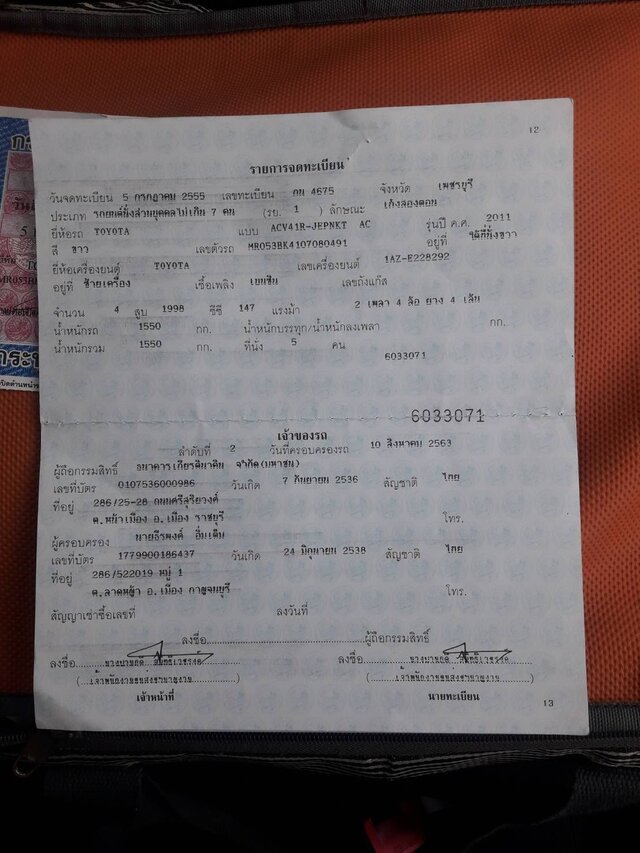 12
รายการจดทะเบียน
วันจดทะเบียน 5 กรกฎาคม 2555 เลขทะเบียน กน 4675 จังหวัด เพชรบุรี
ประเภท รถยนต์นั่งส่วนบุคคลไม่เกิน 7 คน (รย. 1 ) ลักษณะ เก๋งสองตอน
ยี่ห้อรถ TOYOTA แบบ ACV41R-JEPNKT AC รุ่นปี ค.ศ. 2011
สี ขาว เลขตัวรถ MR053BK4107080491 อยู่ที่ ใต้ที่นั่งขวา
ยี่ห้อเครื่องยนต์ TOYOTA เลขเครื่องยนต์ 1AZ-E228292
อยู่ที่ ซ้ายเครื่อง เชื้อเพลิง เบนซิน เลขถังแก๊ส
จำนวน 4 สูบ 1998 ซีซี 147 แรงม้า 2 เพลา 4 ล้อ ยาง 4 เส้น
น้ำหนักรถ 1550 กก. น้ำหนักบรรทุก/น้ำหนักลงเพลา กก.
น้ำหนักรวม 1550 กก. ที่นั่ง 5 คน
6033071
6033071
เจ้าของรถ
ลำดับที่ 2 วันที่ครอบครองรถ 10 สิงหาคม 2563
ผู้ถือกรรมสิทธิ์ ธนาคารเกียรตินาคิน จำกัด(มหาชน)
เลขที่บัตร 0107536000986 วันเกิด 7 กันยายน 2536 สัญชาติ ไทย
ที่อยู่ 286/25-28 ถนนศรีสุริยวงศ์
ต.หน้าเมือง อ.เมือง ราชบุรี โทร.
ผู้ครอบครอง นายธีรพงศ์ อิ่มเต็ม
เลขที่บัตร 1779900186437 วันเกิด 24 มิถุนายน 2538 สัญชาติ ไทย
ที่อยู่ 286/522019 หมู่ 1
ต.ลาดหญ้า อ.เมือง กาญจนบุรี โทร.
สัญญาเช่าซื้อเลขที่ ลงวันที่
ลงชื่อ ผู้ถือกรรมสิทธิ์
ลงชื่อ ลงชื่อ
(เจ้าพนักงานขนส่งชำนาญงาน) (เจ้าพนักงานขนส่งชำนาญงาน)
เจ้าหน้าที่ นายทะเบียน
13